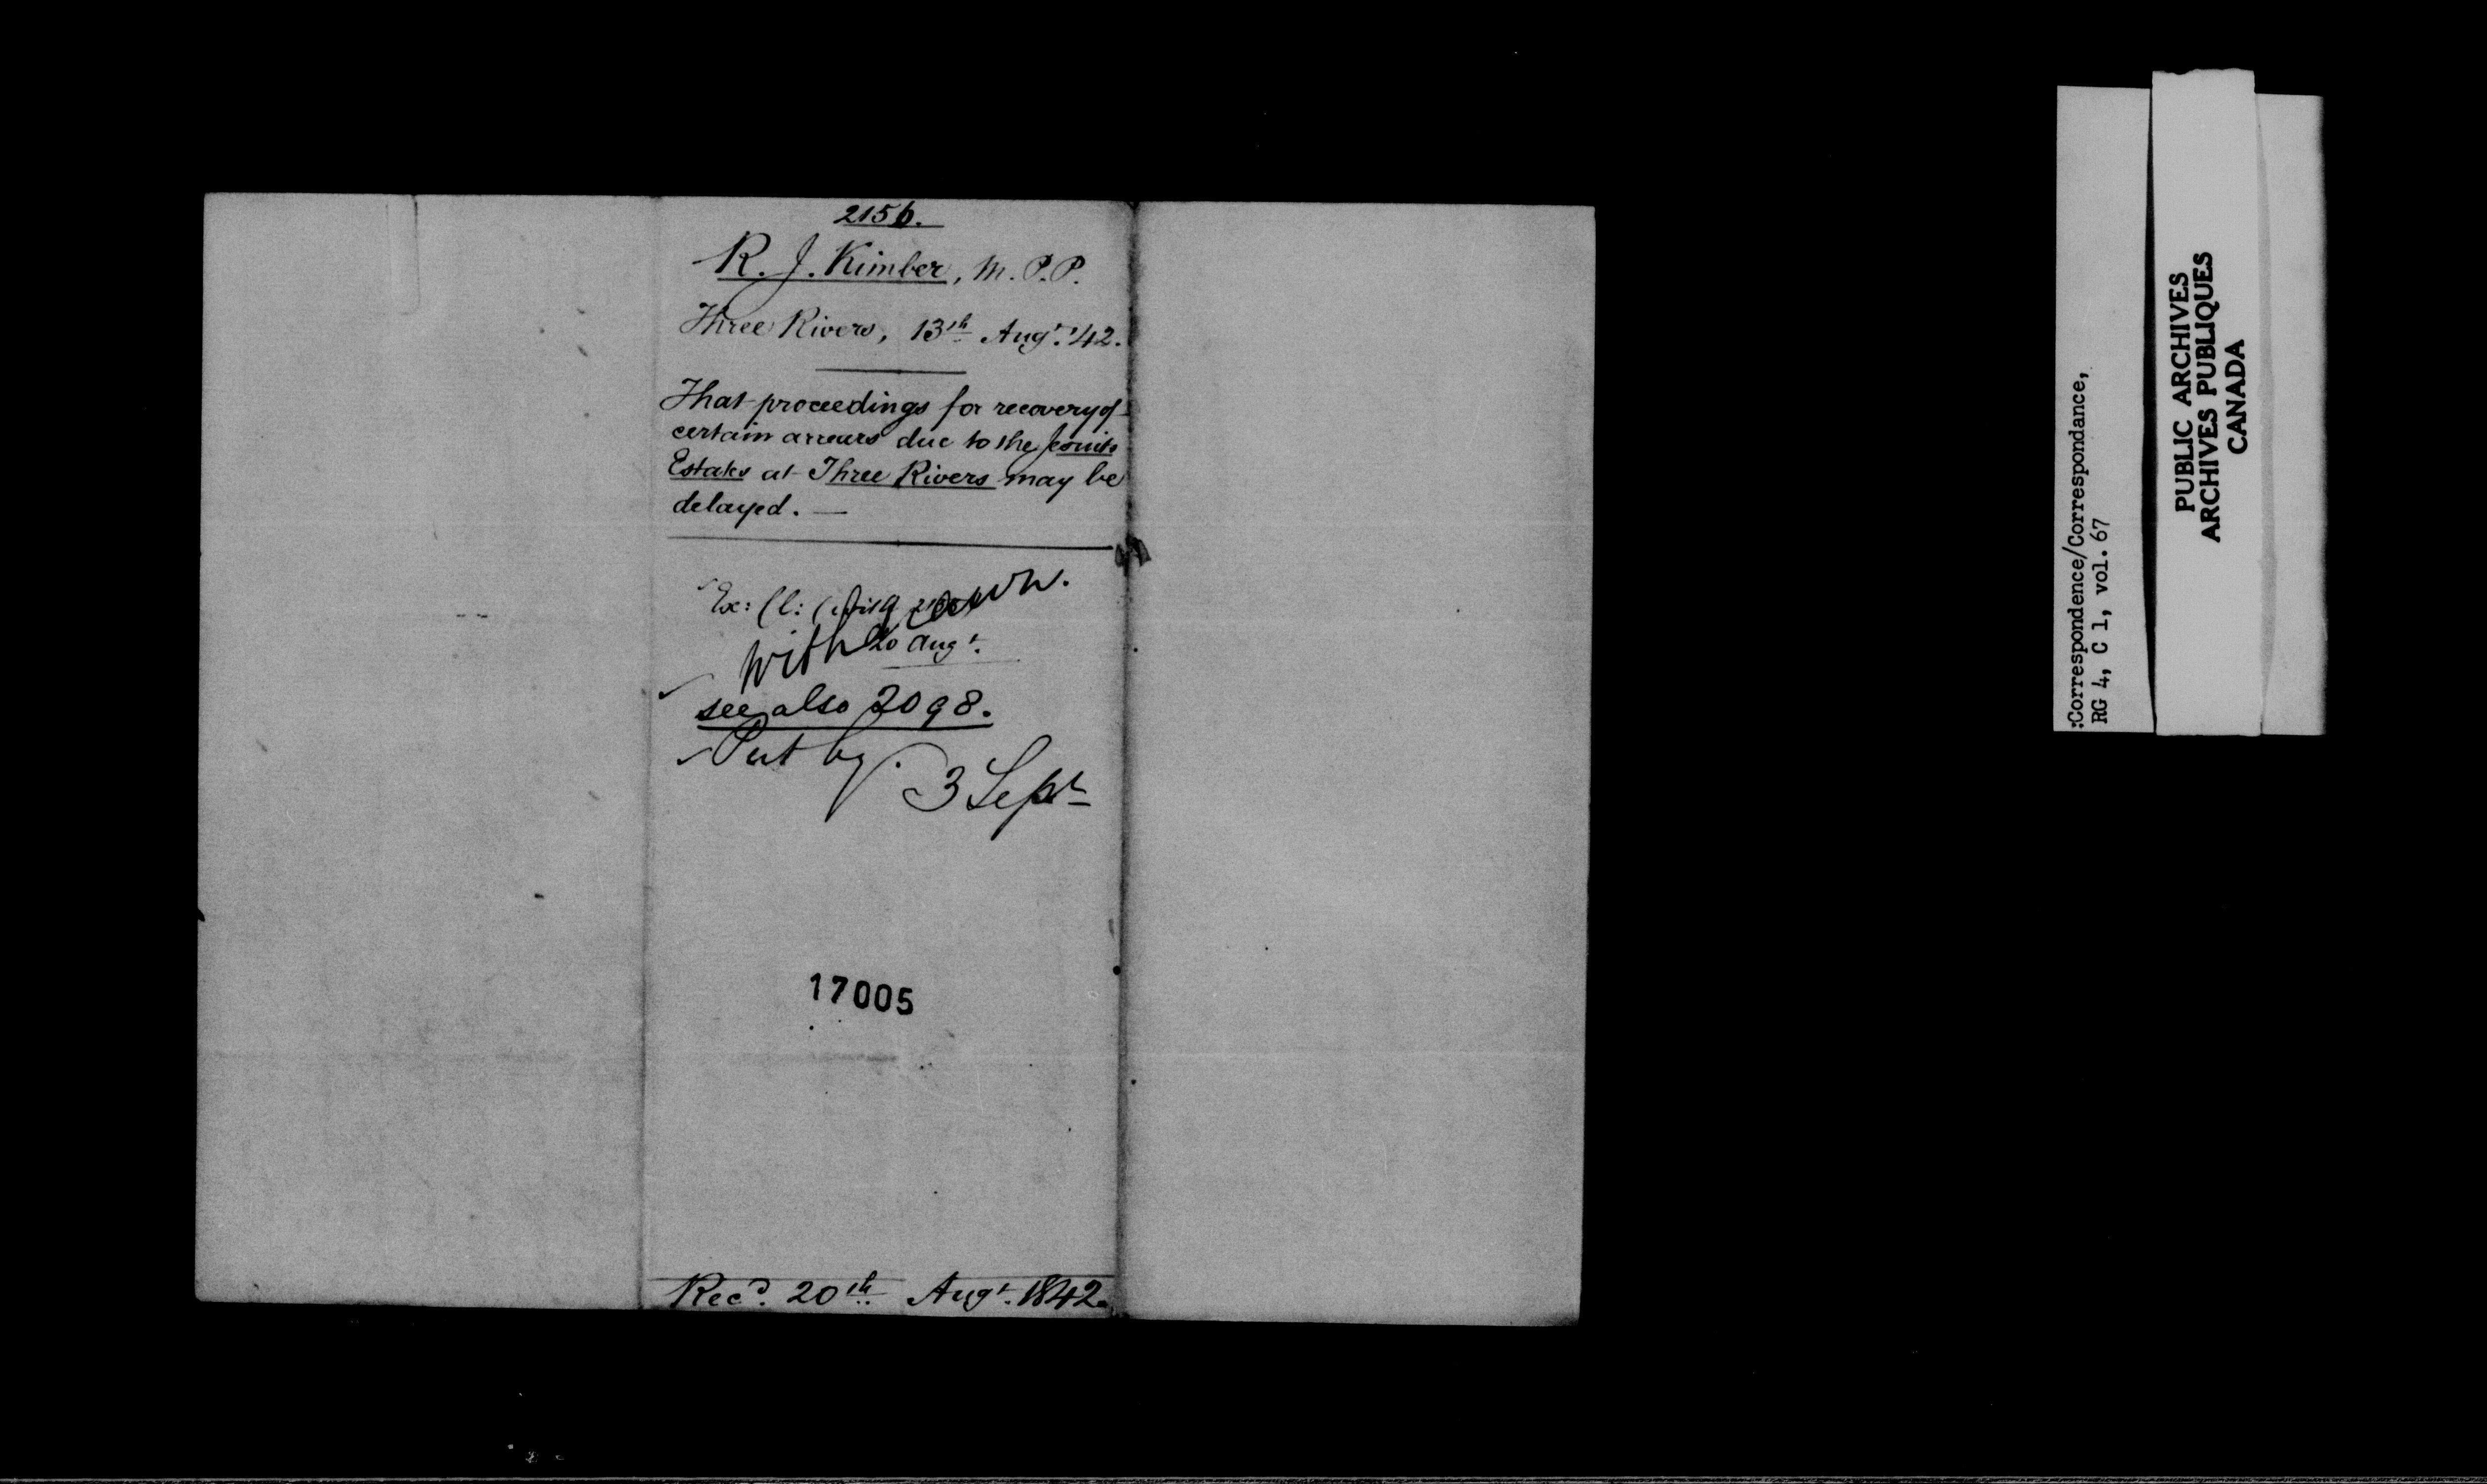 2156.
R. J. Kimber, M. P. P.
Three Rivers, 13th Augt. '42.
That proceedings for recovery of
certain arrears due to the Jesuits
Estates at Three Rivers may be
delayed. —
Ex: Cl:
withdrawn.
20 Augt.
see also 2098.
Put by.
3 Sept
17005
Recd. 20th Augt. 1842.
:Correspondence/Correspondance,
RG 4, C 1, vol. 67
PUBLIC ARCHIVES
ARCHIVES PUBLIQUES
CANADA